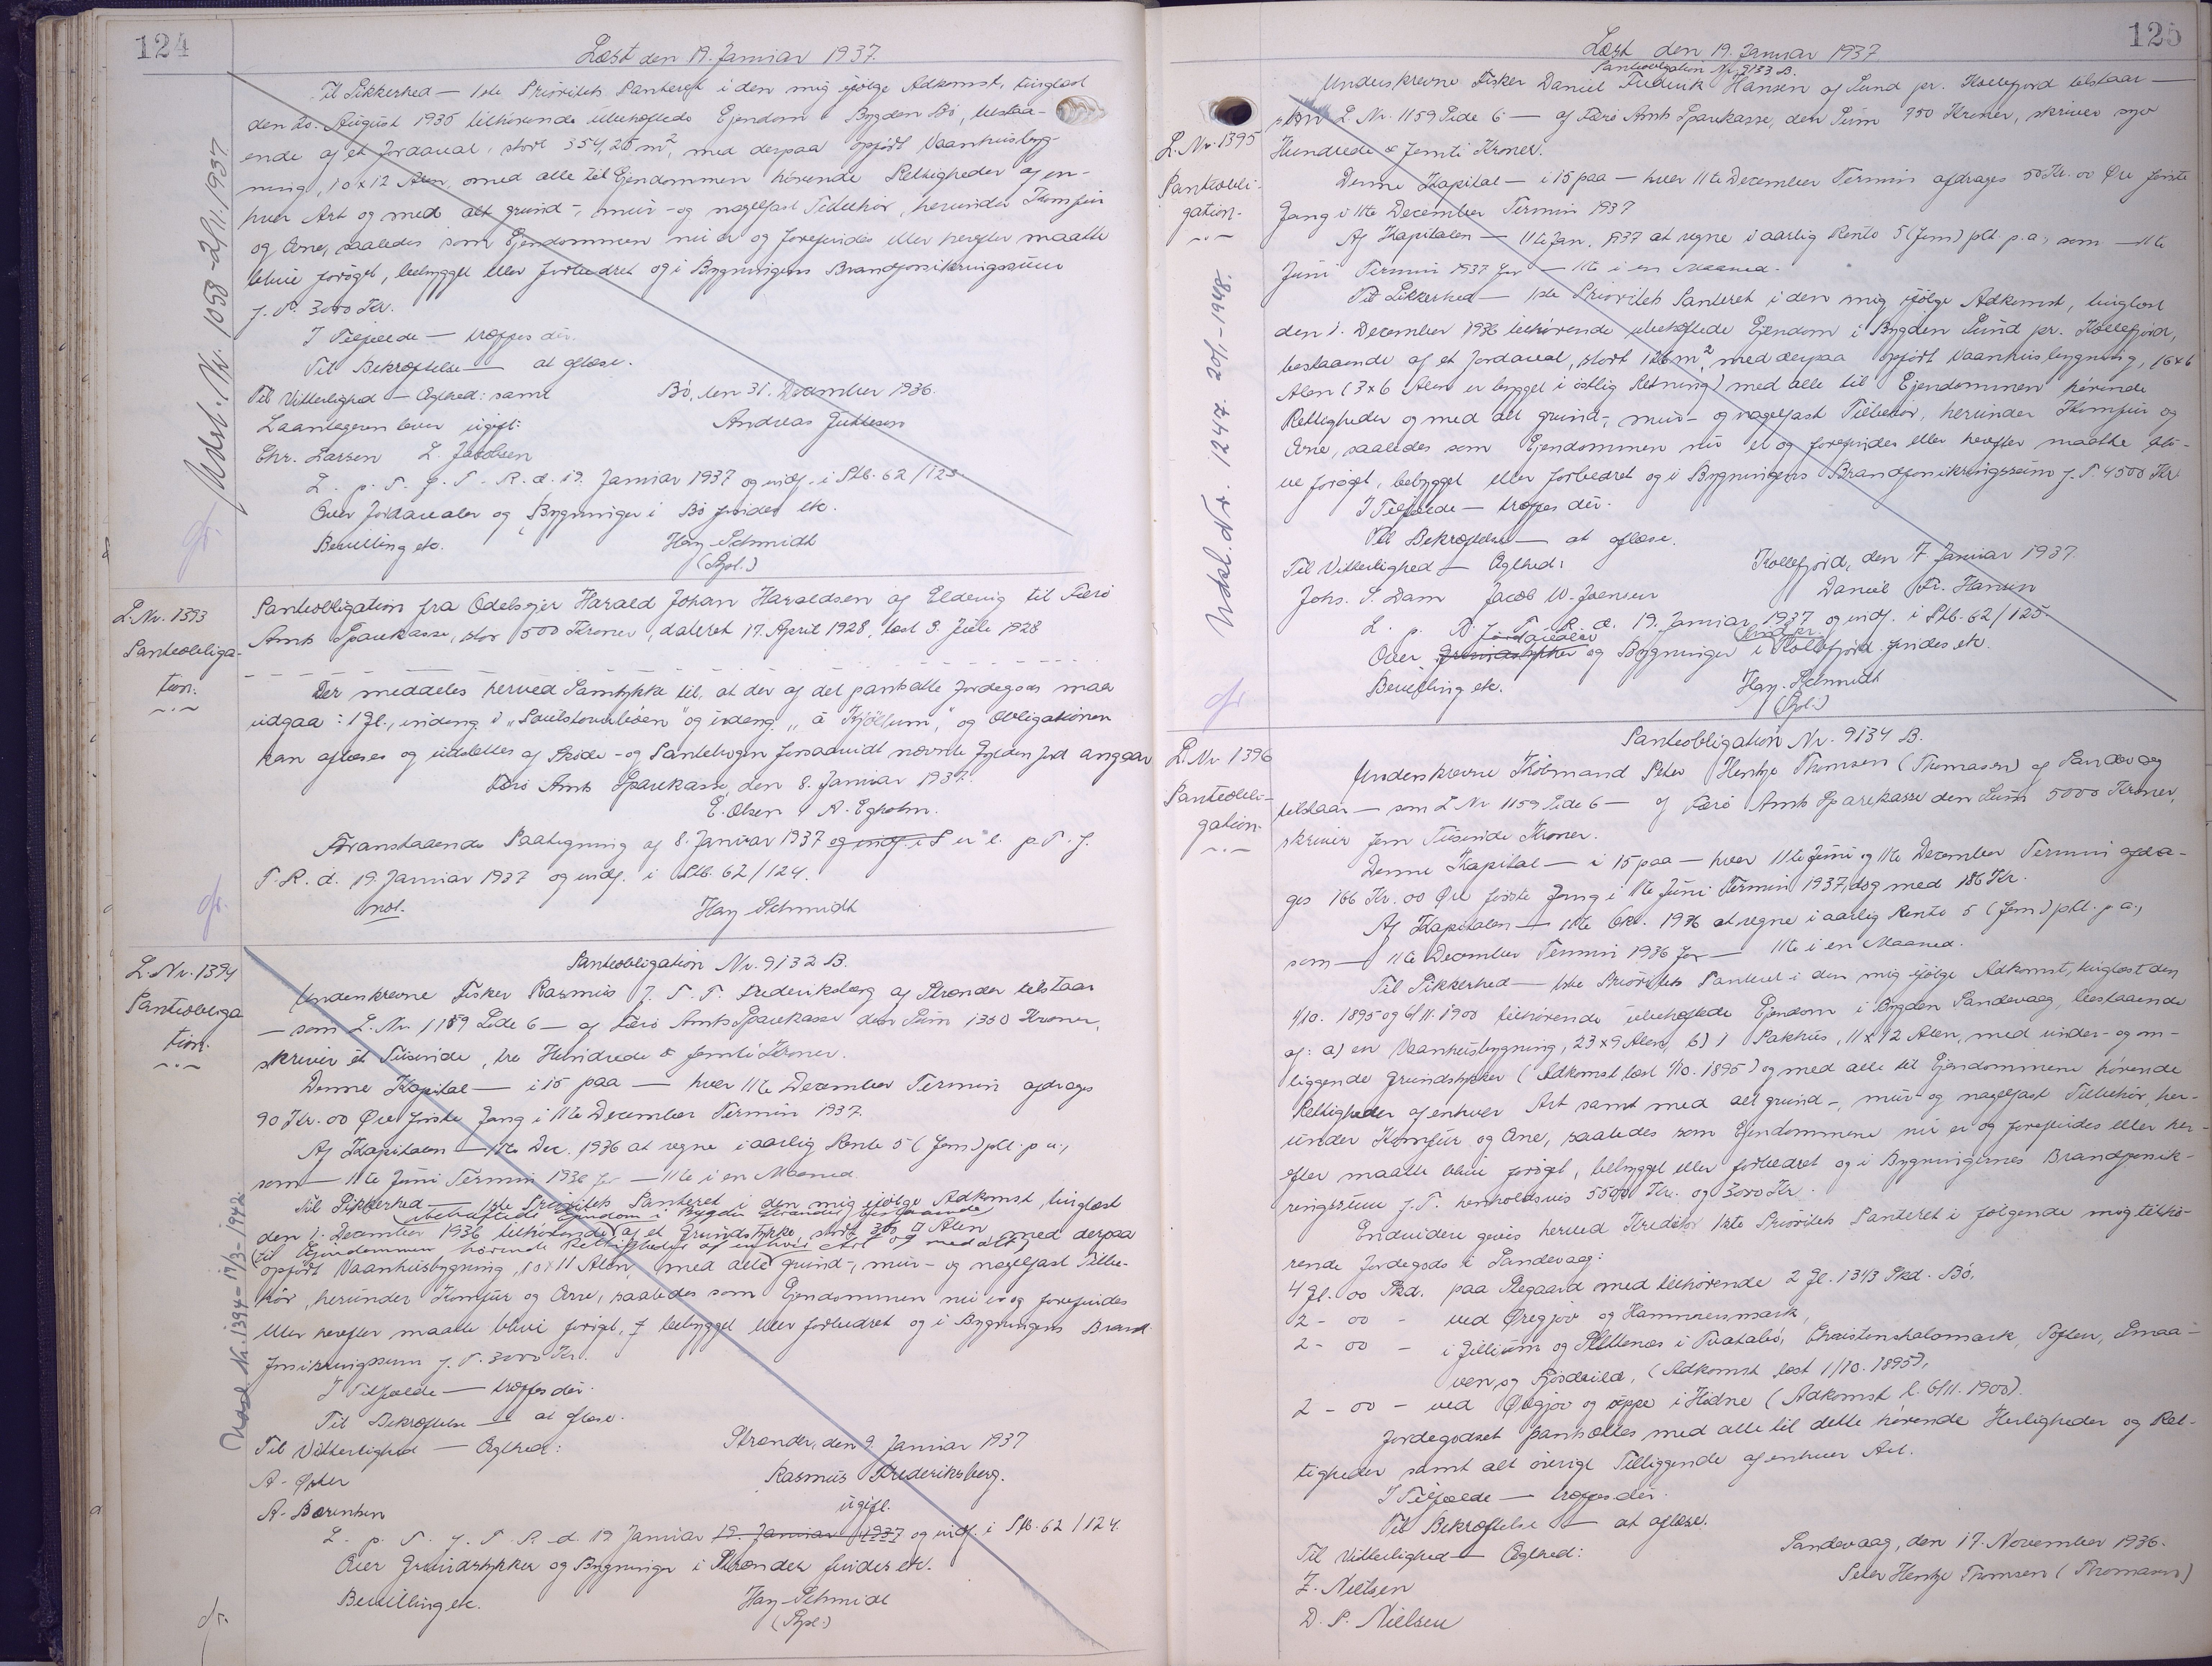 124
Læst den 19. Januar 1937.
Til Sikkerhed — 1ste Prioritets Panteret i den mig ifølge Adkomst, tinglæst
den 20. August 1936 tilhørende ubehæftede Ejendom i Bygden Bø, bestaa-
ende af et Jordareal, stort 354,25 m², med derpaa opført Vaanhusbyg-
ning, 10 x 12 Alen, med alle til Ejendommen hørende Rettigheder af en-
hver Art og med alt grund-, mur- og nagelfast Tilbehør, herunder Komfur
og Ovne, saaledes som Ejendommen nu er og forefindes eller herefter maatte
blive forøget, bebygget eller forbedret og i Bygningens Brandforsikringssum
f. T. 3000 Kr.
I Tilfælde — træffes der.
Til Bekræftelse — at aflæse.
Til Vitterlighed — Ægthed: samt
Bø, den 31. December 1936.
Laantageren lever ugift:
Andreas Juttesen
Chr. Larsen L. Jacobsen
L. p. T. f. T. R. d. 19. Januar 1937 og indf. i Ptb. 62/123
Over Jordarealer og Bygninger i Bø findes etc.
Bevilling etc.
Hay-Schmidt
(Rpl.)
Udsl. Nr. 1058 - 2/11. 1937.
L. Nr. 1393
Panteobliga-
tion.
Panteobligation fra Odelsejer Harald Johan Haraldsen af Eldevig til Færø
Amts Sparekasse, stor 500 Kroner, dateret 17. April 1928, læst 3. Juli 1928
Der meddeles herved Samtykke til, at der af det pantsatte Jordegods maa
udgaa: 1 Gl., indeng i og indeng og Obligationen
kan aflæses og udslettes af Skøde- og Pantebogen forsaavidt nævnte Gylden Jord angaar
Færø Amts Sparekasse, den 8. Januar 1937.
E. Olsen N. Egholm.
Foranstaaende Paategning af 8. Januar 1937 og indf. i S er l. p. T. f.
T. R. d. 19. Januar 1937 og indf. i Ptb. 62/124.
Hay Schmidt
L. Nr. 1394
Panteobliga
tion.
Panteobligation Nr. 9132 B.
Underskrevne Fisker Rasmus J. T. T. Frederiksberg af Strender tilstaar
— som L. Nr. 1159 Side 6 — af Færø Amts Sparekasse den Sum 1350 Kroner,
skriver et Tusinde, tre Hundrede & femti Kroner.
Denne Kapital — i 15 paa — hver 11te December Termin afdrages
90 Kr. 00 Øre første Gang i 11te December Termin 1937.
Af Kapitalen — 11te Dec. 1936 at regne i aarlig Rente 5 (fem) pCt. p. a.,
som — 11te Juni Termin 1936 for — 11te i en Maaned.
Til Sikkerhed — 1ste Prioritets Panteret i den mig ifølge Adkomst, tinglæst
ubehæftede Ejendom i Bygden Strender bestaaende
den 1. December 1936 tilhørende af et Grundstykke, stort 36 □ Alen med derpaa
til Ejendommen hørende Rettigheder af enhver Art og med alt
opført Vaanhusbygning, 10 x 11 Alen, med alle grund-, mur- og nagelfast Tilbe-
hør, herunder Komfur og Ovne, saaledes som Ejendommen nu er og forefindes
eller herefter maatte blive forøget, bebygget eller forbedret og i Bygningens Brand-
forsikringssum f. T. 3000 Kr.
I Tilfælde — træffes der.
Til Bekræftelse — at aflæse.
Til Vitterlighed — Ægthed:
Strender, den 9. Januar 1937
A. Øster
Rasmus Frederiksberg.
A. Bærentsen
ugift.
L. p. T. f. T. R. d. 19 Januar 19. Januar 1937 og indf. i Ptb. 62/124.
Over Grundstykker og Bygninger i Strender findes etc.
Bevilling etc.
Hay-Schmidt
(Rpl.)
Udsl. Nr. 1394 - 19/3 - 1942
125
Læst den 19. Januar 1937
Panteobligation Nr. 9133 B.
Underskrevne Fisker Daniel Frederik Hansen af Sund pr. Kollefjord tilstaar —
som L. Nr. 1159 Side 6 — af Færø Amts Sparekasse, den Sum 750 Kroner, skriver syv
L. Nr. 1395
Hundrede & femti Kroner.
Panteobli-
gation.
Denne Kapital — i 15 paa — hver 11te December Termin afdrages 50 Kr. 00 Øre første
Gang i 11te December Termin 1937
Af Kapitalen — 11te Jan. 1937 at regne i aarlig Rente 5 (fem) pCt p. a., som — 11te
Juni Termin 1937 for — 11te i en Maaned.
Til Sikkerhed — 1ste Prioritets Panteret i den mig ifølge Adkomst, tinglæst
den 1. December 1936 tilhørende ubehæftede Ejendom i Bygden Sund pr. Kollefjord,
bestaaende af et Jordareal, stort 126 m², med derpaa opført Vaanhusbygning, 16 x 6
Alen (3 x 6 Alen er bygget i østlig Retning) med alle til Ejendommen hørende
Rettigheder og med alt grund-, mur- og nagelfast Tilbehør, herunder Komfur og
Ovne, saaledes som Ejendommen nu er og forefindes eller herefter maatte bli-
ve forøget, bebygget eller forbedret og i Bygningens Brandforsikringssum f. T. 4500 Kr
I Tilfælde — træffes der.
Til Bekræftelse — at aflæse.
Til Vitterlighed — Ægthed:
Kollefjord, den 7. Januar 1937.
Johs. P. Dam Jacob W. Joensen
Daniel Fr. Hansen
L. p. T. f. T. R. d. 19. Januar 1937 og indf. i Ptb. 62/125.
Jordarealer
Sund pr.
Over Grundstykker og Bygninger i Kollefjord findes etc.
Bevilling etc.
Hay-Schmidt
(Rpl.)
Udsl. Nr. 1247. 20/1 - 1948.
L. Nr. 1396
Panteobli-
gation.
Panteobligation Nr. 9134 B.
Underskrevne Købmand Peter Hentze Thomsen (Thomasen) af Sandevaag
tilstaar — som L Nr 1159 Side 6 — af Færø Amts Sparekasse den Sum 5000 Kroner,
skriver fem Tusinde Kroner.
Denne Kapital — i 15 paa — hver 11te Juni og 11te December Termin afdra-
ges 166 Kr. 00 Øre første Gang i 11te Juni Termin 1937, dog med 186 Kr.
Af Kapitalen — 11te Okt. 1936 at regne i aarlig Rente 5 (fem) pCt. p. a.,
som — 11te December Termin 1936 for — 11te i en Maaned.
Til Sikkerhed — 1ste Prioritets Panteret i den mig ifølge Adkomst, tinglæst den
1/10. 1895 og 6/11. 1900 tilhørende ubehæftede Ejendom i Bygden Sandevaag, bestaaende
af: a) en Vaanhusbygning, 23 x 9 Alen, b) 1 Pakhus, 11 x 12 Alen, med under- og om-
liggende Grundstykker (Adkomst læst 1/10. 1895) og med alle til Ejendommene hørende
Rettigheder af enhver Art samt med alt grund-, mur- og nagelfast Tilbehør, her-
under Komfur og Ovne, saaledes som Ejendommene nu er og forefindes eller her-
efter maatte blive forøget, bebygget eller forbedret og i Bygningernes Brandforsik-
ringssum f. T. henholdsvis 5500 Kr. og 3000 Kr.
Endvidere gives herved Kreditor 1ste Prioritets Panteret i følgende mig tilhø-
rende Jordegods i Sandevaag:
4 Gl. 00 Skd. paa Stegaard med tilhørende 2 Gl. 13 1/3 Skd. Bø,
2 - 00 - ved Øregjov og Hammersmark,
2 - 00 - i og Slettenæs i Tvatabø, Christenshalsmark, Toften, Smaa-
ven og (Adkomst læst 1/10. 1895),
2 - 00 - ved Øregjov og oppe i Hødne (Adkomst l. 6/11. 1900).
Jordegodset pantsættes med alle til dette hørende Herligheder og Ret-
tigheder samt alt øvrigt Tilliggende af enhver Art.
I Tilfælde — træffes der.
Til Bekræftelse — at aflæse.
Til Vitterlighed — Ægthed:
Sandevaag, den 17. November 1936.
Z. Nielsen
Peter Hentze Thomsen (Thomasen)
D. P. Nielsen